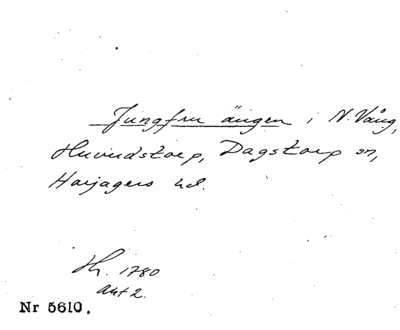 Jungfru ängen i N. Vång,
Huvudstorp, Dagstorp sn,
Harjagers hd.
Sk. 1780
akt 2.
Nr 5610.